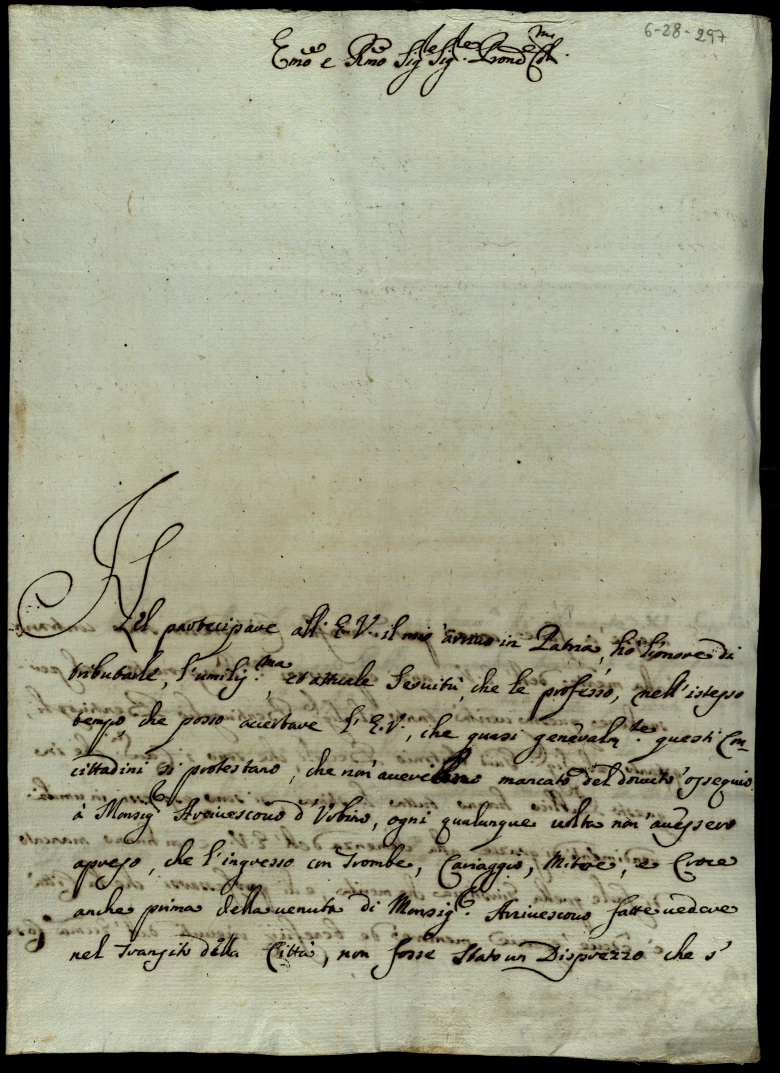 6-28-297
Emo e Rmo Sig.re Sig.re Prone Colmo
Nel partecipare all' E.V. il mio arrivo in Patria, hò l'onore di
tributarle, l'umiliss.ma, et attuale Servitù, che le professo, nell'istesso
tempo che posso accertare l'E.V., che quasi generalm.te questi Con=
cittadini si protestano, che non' averebbero mancato del dovuto ossequio
à Monsig.r Arcivescovo d'Urbino, ogni qualunque volta non' avessero
apreso, che l'ingresso con Trombe, Cariaggio, Mitore, e Croce
anche prima della venuta di Monsig.r Arcivescovo fatte vedere
nel Transito della Città, non fosse stato un Disprezzo che s'